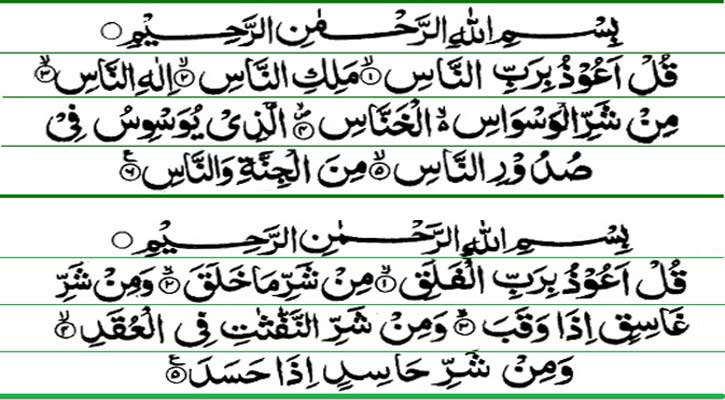 بِسْمِ اللهِ الرَّحْمٰنِ الرَّحِيْمِ ○
قُلْ اَعُوْذُ بِرَبِّ النَّاسِ ۙ﴿۱﴾ مَلِكِ النَّاسِ ۙ﴿۲﴾ اِلٰهِ النَّاسِ ۙ﴿۳﴾
مِنْ شَرِّ الْوَسْوَاسِ ۙ۬ الْخَنَّاسِ ۙ﴿۴﴾ الَّذِیْ يُوَسْوِسُ فِیْ
صُدُوْرِ النَّاسِ ۙ﴿۵﴾ مِنَ الْجِنَّةِ وَالنَّاسِ ﴿۶﴾
بِسْمِ اللهِ الرَّحْمٰنِ الرَّحِيْمِ ○
قُلْ اَعُوْذُ بِرَبِّ الْفَلَقِ ۙ﴿۱﴾ مِنْ شَرِّ مَا خَلَقَ ۙ﴿۲﴾ وَمِنْ شَرِّ
غَاسِقٍ اِذَا وَقَبَ ۙ﴿۳﴾ وَمِنْ شَرِّ النَّفّٰثٰتِ فِی الْعُقَدِ ۙ﴿۴﴾
وَمِنْ شَرِّ حَاسِدٍ اِذَا حَسَدَ ﴿۵﴾